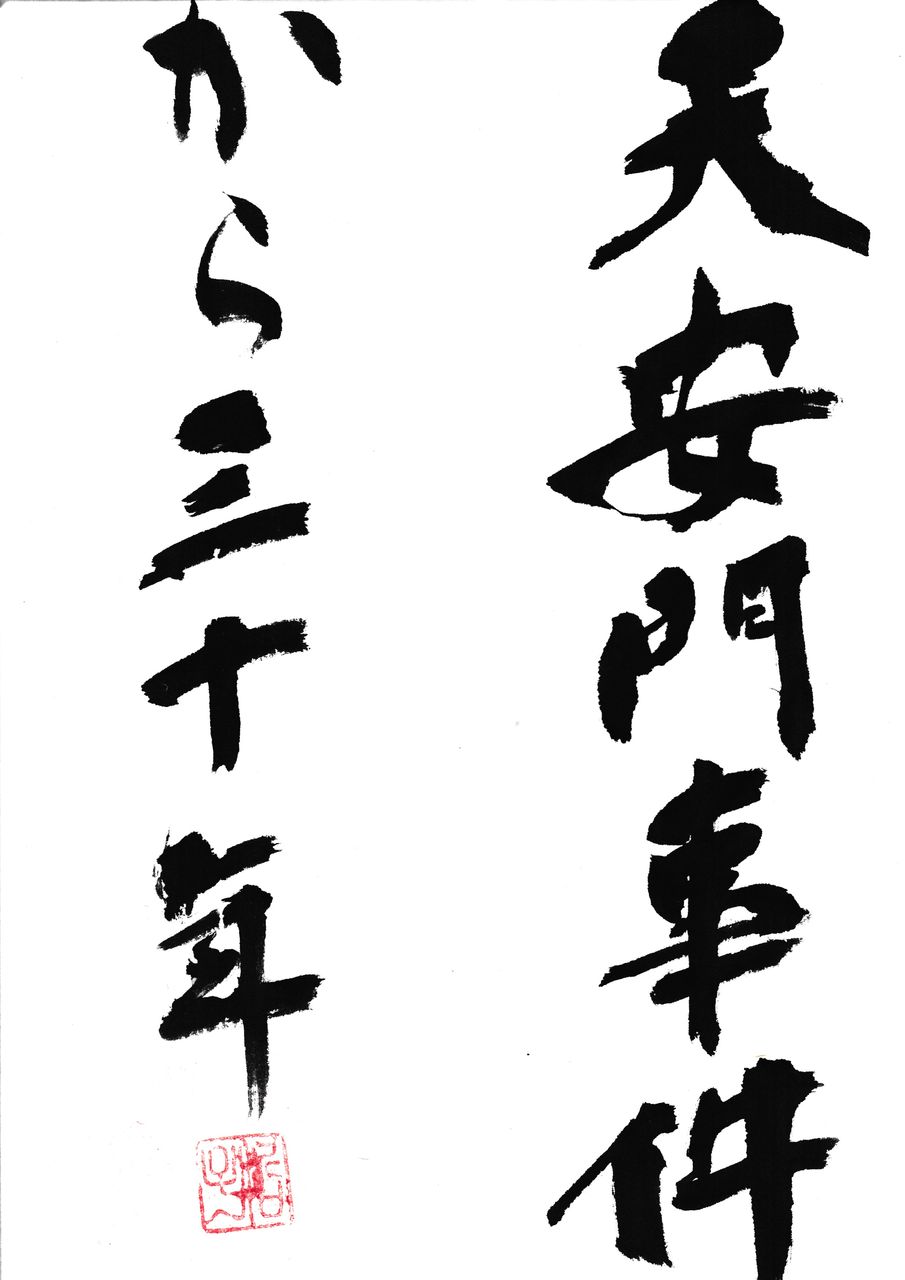 天安門事件
から三十年